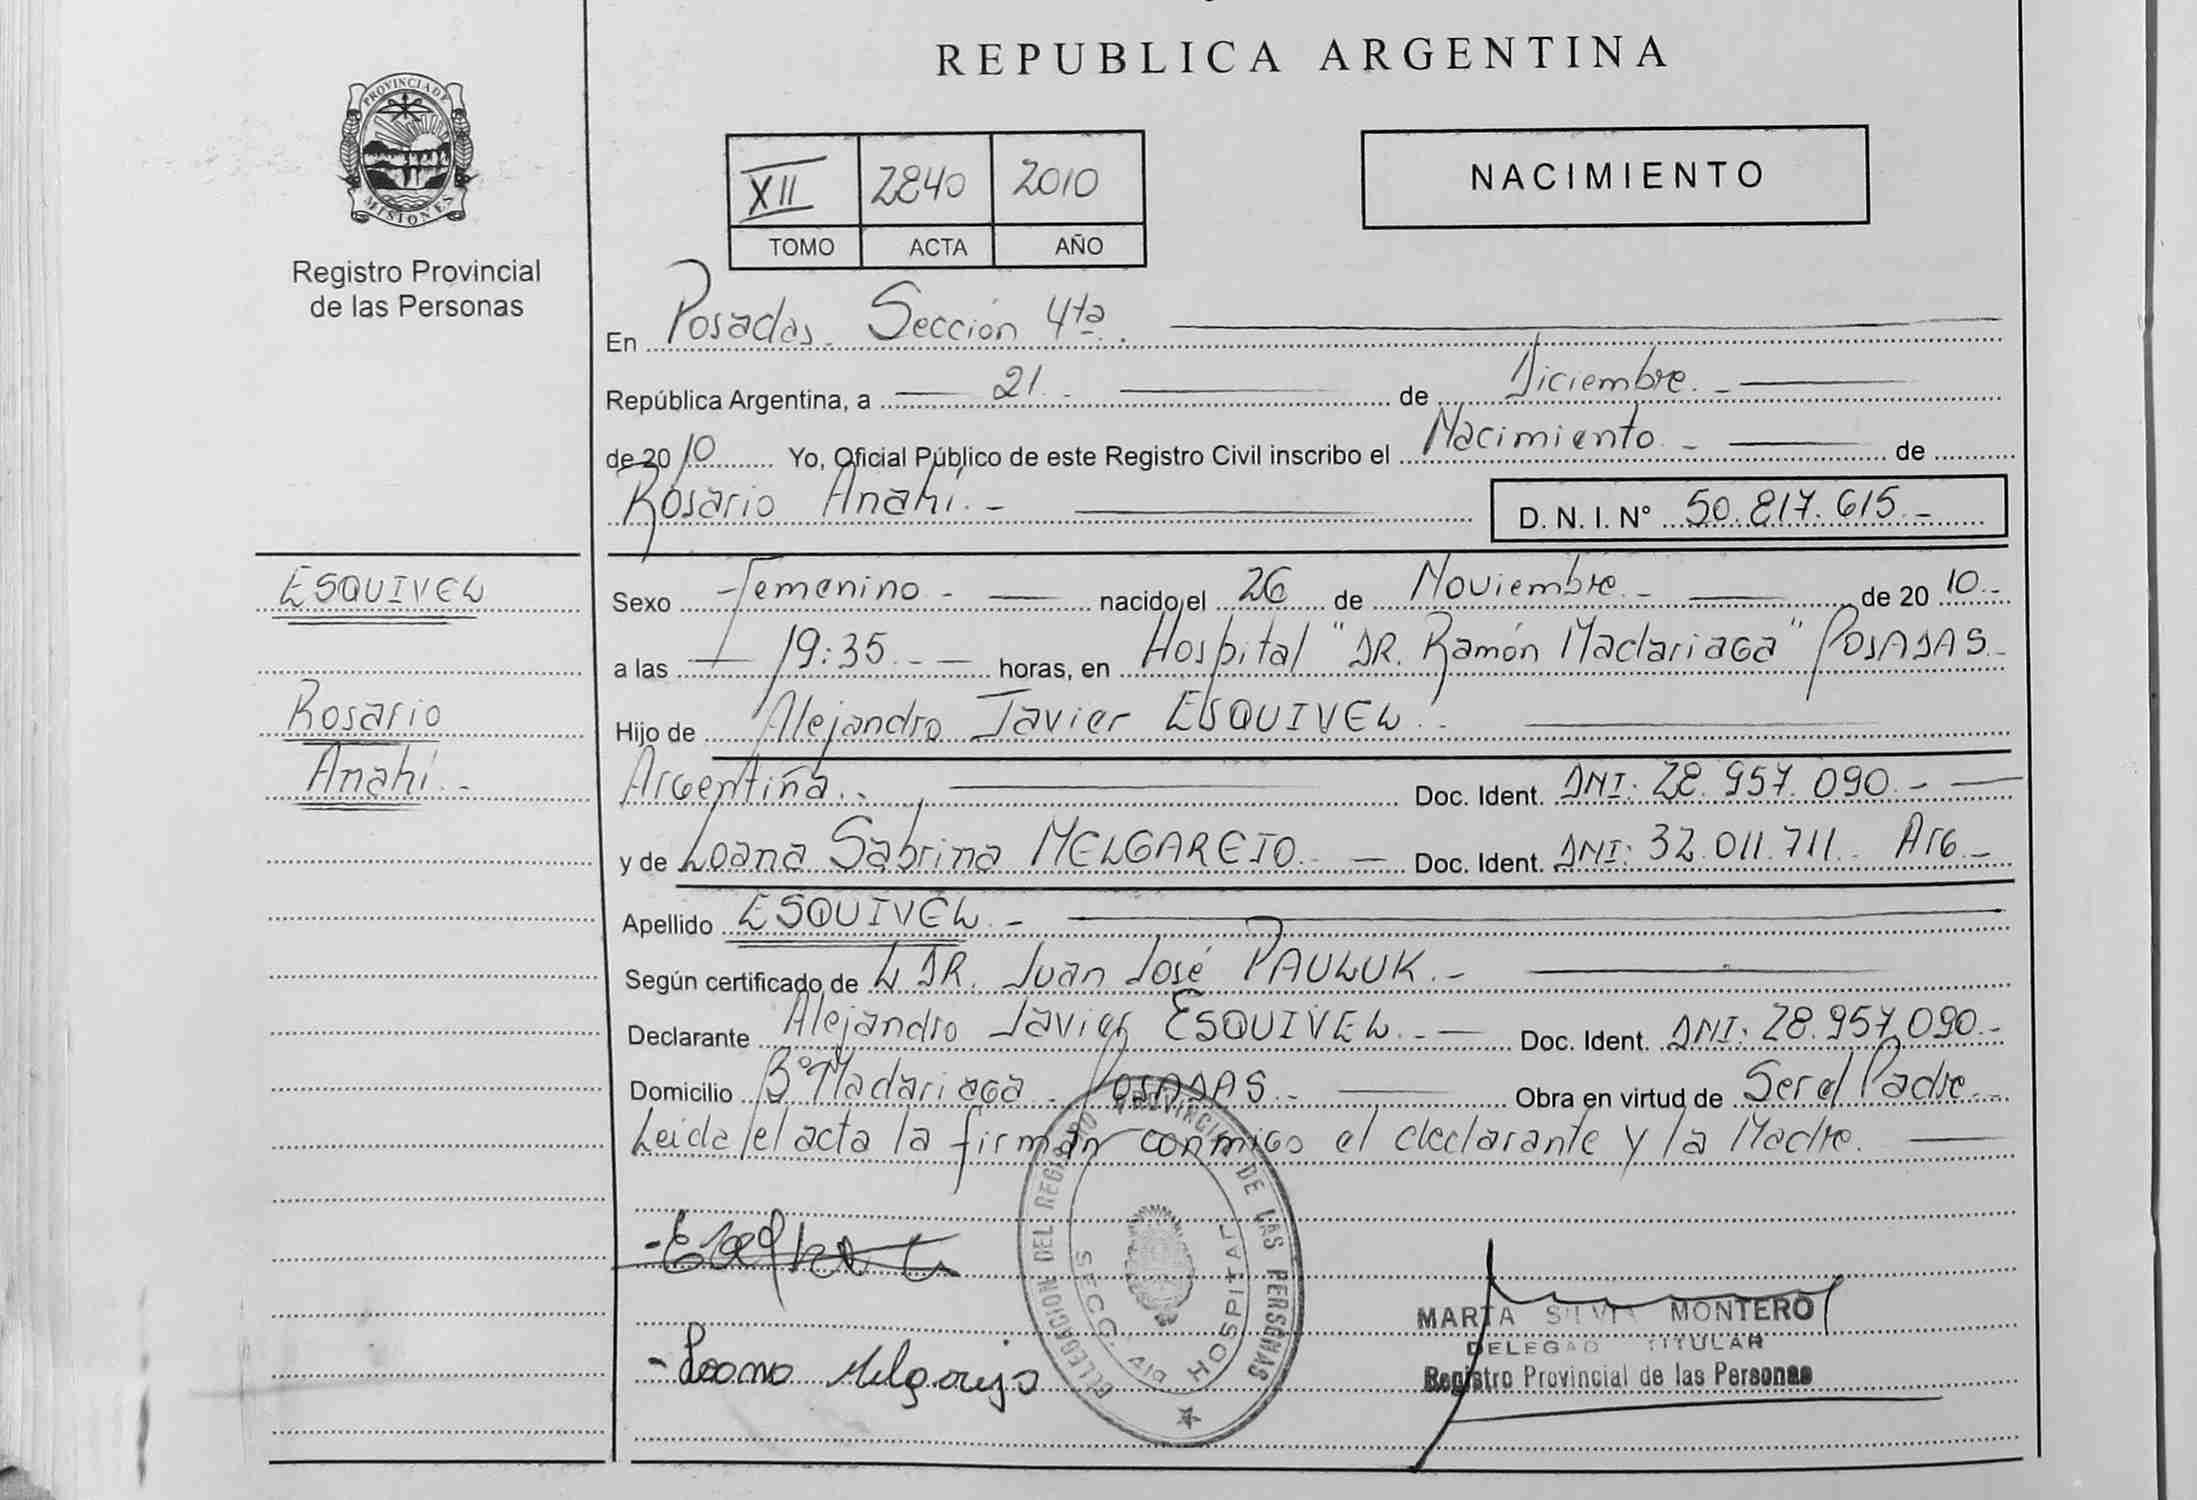 REPUBLICA ARGENTINA
PROVINCIA DE MISIONES
Registro Provincial
de las Personas
XII 2840 2010
TOMO ACTA AÑO
NACIMIENTO
En Posadas Sección 4ta.
República Argentina, a 21 de Diciembre.
de 2010 Yo, Oficial Público de este Registro Civil inscribo el Nacimiento de
Rosario Anahí. D. N. I. Nº 50.817.615
ESQUIVEL
Rosario
Anahí.
Sexo Femenino nacido el 26 de Noviembre de 2010
a las 19:35 horas, en Hospital "DR. Ramón Madariaga" POSADAS
Hijo de Alejandro Javier ESQUIVEL.
Argentina. Doc. Ident. DNI: 28.957.090
y de Loana Sabrina MELGAREJO Doc. Ident. DNI: 32.011.711 Arg
Apellido ESQUIVEL
Según certificado de L DR. Juan José PAULUK.
Declarante Alejandro Javier ESQUIVEL Doc. Ident. DNI: 28.957.090
Domicilio Bº Madariaga POSADAS Obra en virtud de Ser el Padre
Leida el acta la firman conmigo el declarante y la Madre.
DELEGACION DEL REGISTRO PROVINCIAL DE LAS PERSONAS
SECC. 4ta HOSPITAL
Loana Melgarejo
MARTA SILVIA MONTERO
DELEGADO TITULAR
Registro Provincial de las Personas